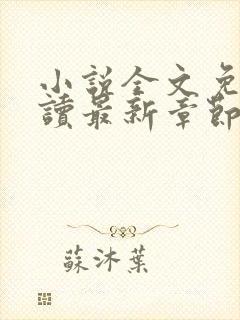 小說全文免
讀最新章節
蘇沐葉